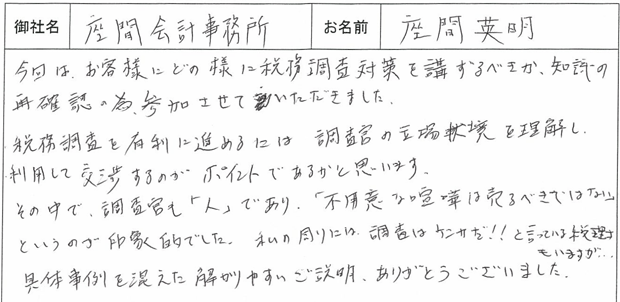 御社名 座間会計事務所 お名前 座間英明
今回は、お客様にどの様に税務調査対策を講ずるべきか、知識の
再確認の為、参加させていただきました。
税務調査を有利に進めるには 調査官の立場、状境を理解し、
利用して交渉するのがポイントであるかと思います。
その中で、調査官も「人」であり、「不用意な喧嘩は売るべきではない」
というのが印象的でした。私の周りには、調査はケンカだ!!と言っている税理士
もいますが…
具体事例を混えた解かりやすいご説明、ありがとうございました。